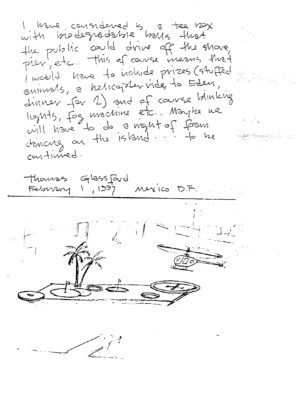 I have considered is a tee box
with biodegradable balls that
the public could drive off the shore,
pier, etc. This of course means that
I would have to include prizes (stuffed
animals, a helicopter ride to Eden,
dinner for 2) and of course blinking
lights, fog machine etc.. Maybe we
will have to do a night of foam
dancing on the island.... to be
continued.
Thomas Glassford
February 1, 1997 Mexico D.F.